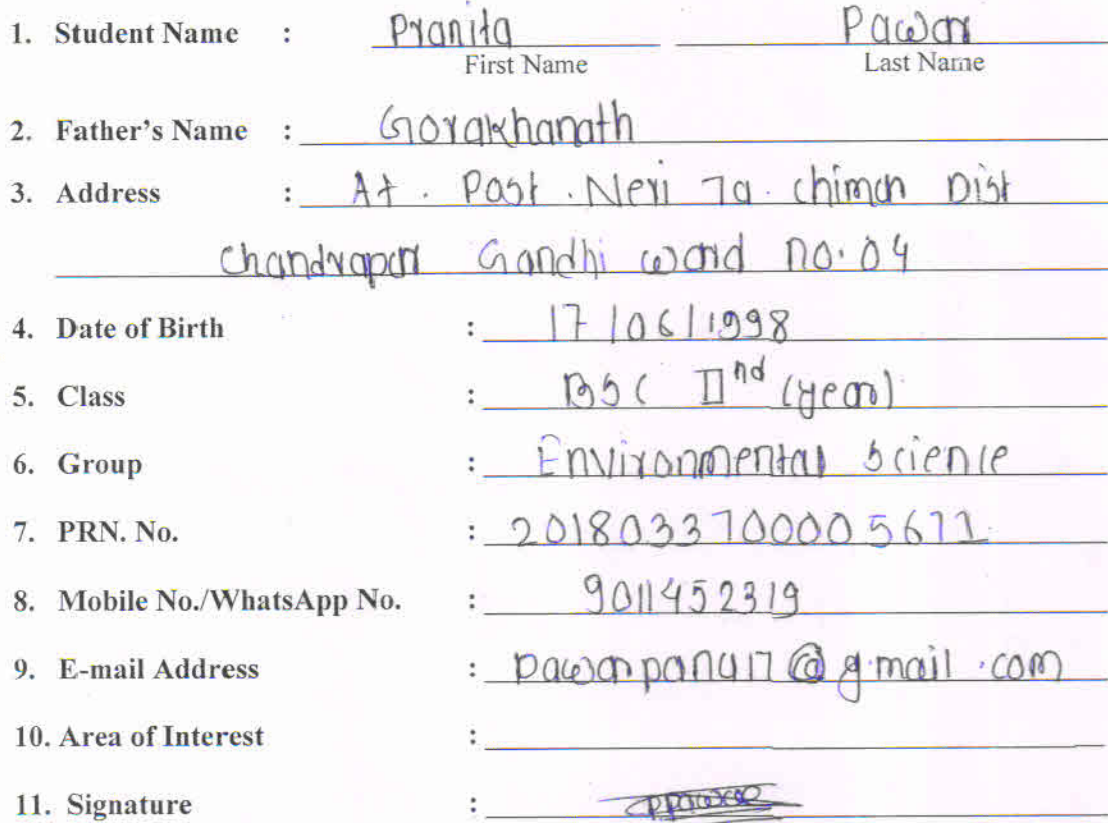 1. Student Name : Pranita Pawar
First Name Last Name
2. Father's Name : Gorakhanath
3. Address : At. Post. Neri Ta. chimur Dist
Chandrapur Gandhi ward no. 04
4. Date of Birth : 17/06/1998
5. Class : BSC IInd (year)
6. Group : Environmental Science
7. PRN. No. : 2018033700005671
8. Mobile No./WhatsApp No. : 9011452319
9. E-mail Address : @g.mail.com
10. Area of Interest :
11. Signature :